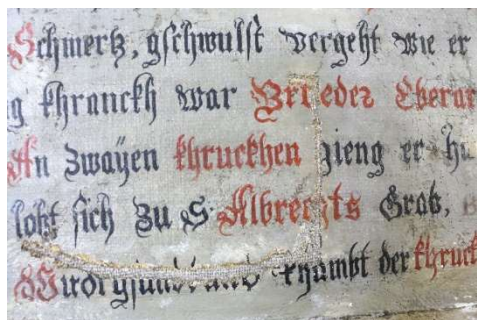 Schmertz, gschwulst vergeht wie er
g khranckh war Brueder Eberar
An zwayen khruckhen gieng er hu
lobt sich zu S: Albrechts Grab,
khambt der khruck